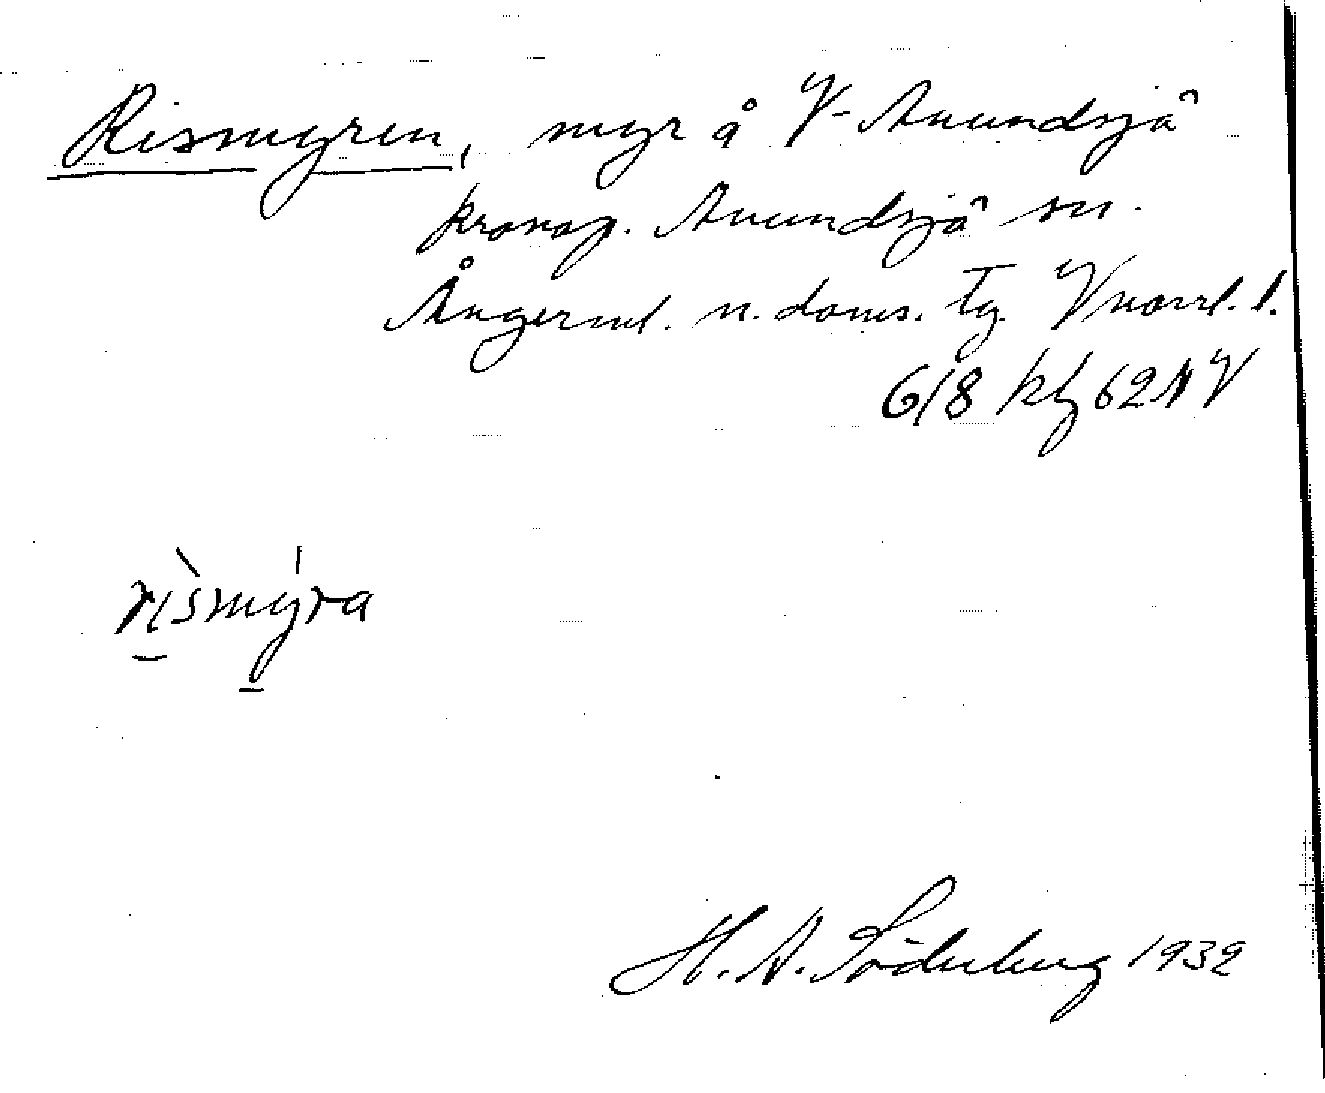 Rismyren, myr å V. Anundsjö
kronop. Anundsjö sn.
Ångerml. n. doms. Tg. Vnorrl. l.
6/8 kbl 62 NV
rismyra
H. A. Söderberg 1932